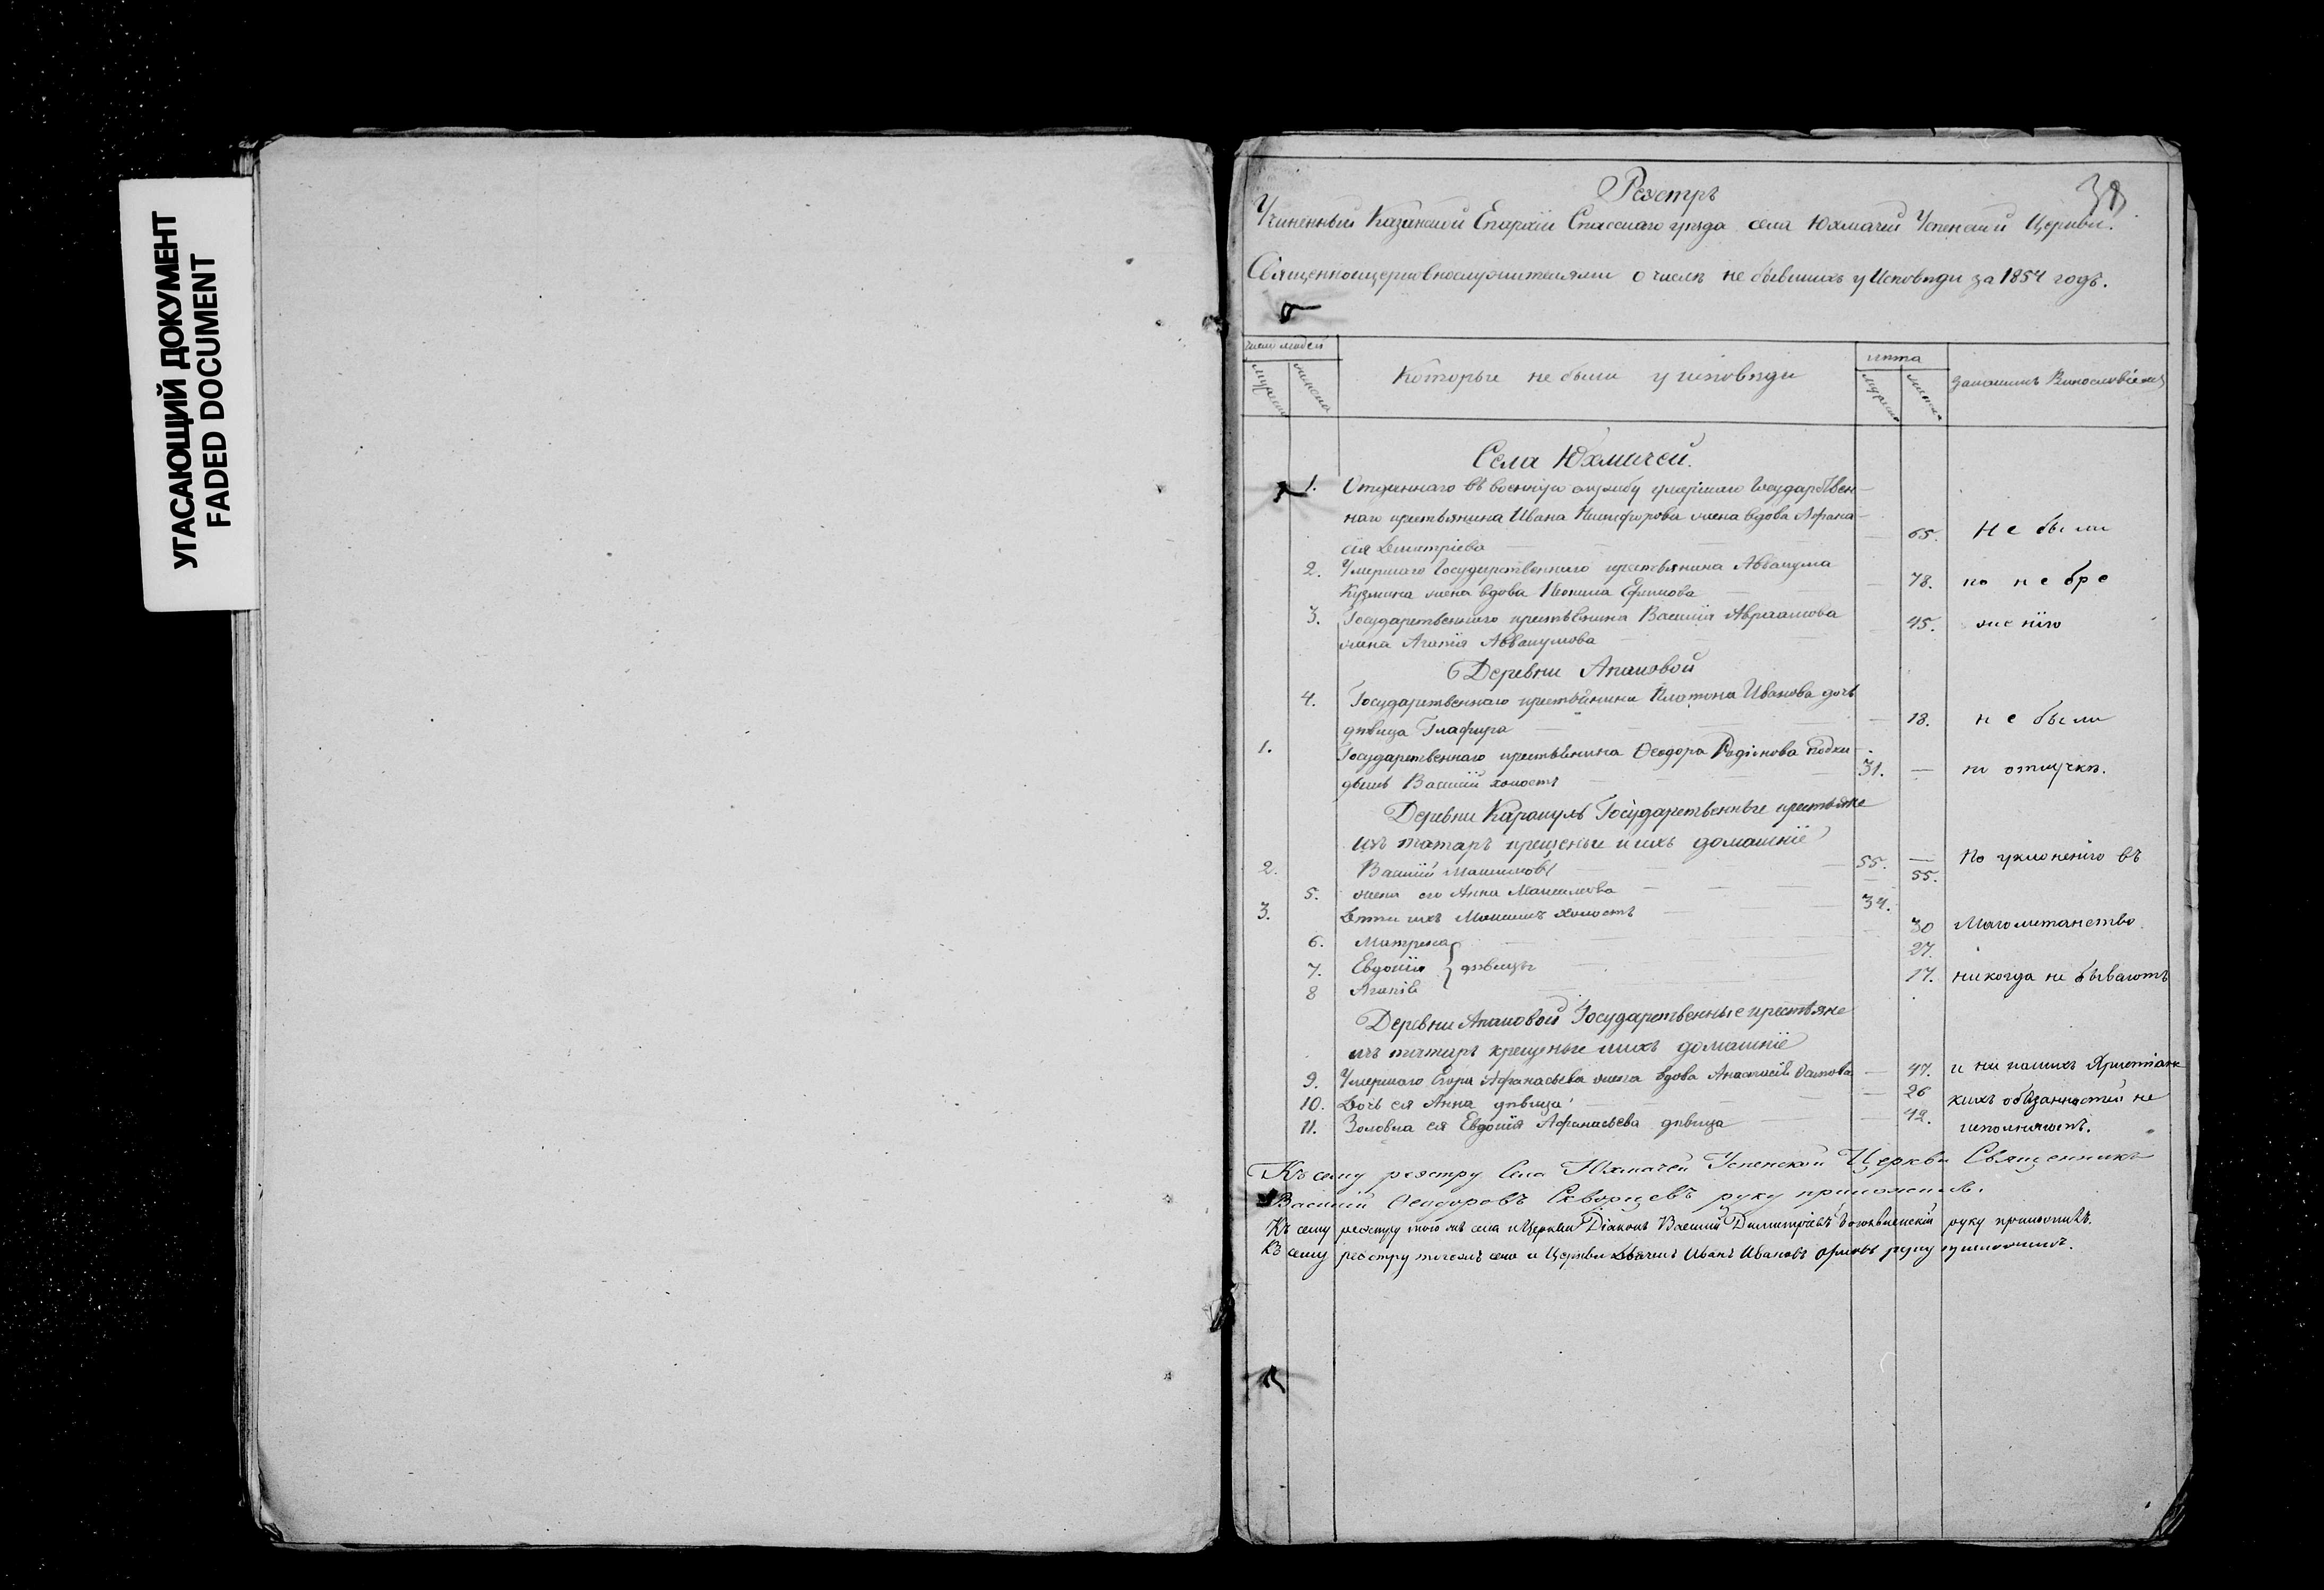 УГАСАЮЩИЙ ДОКУМЕНТ
FADED DOCUMENT
38
Реэстръ
Учиненный Казанской Епархіи Спасскаго уѣзда села Юхмачей Успенской Церкви.
Священноицерковнослужителями о числѣ не бывшихъ у Исповѣди за 1854 годъ.
число людей
мужеска
женска
Которые не были у исповѣди
лѣта
мужеска
женска
за какимъ Винословіемъ
Села Юхмачей.
1. Отданнаго въ военную службу умершаго Государствен-
наго крестьянина Ивана Никифорова жена вдова Афана-
сія Димитріева 65. Не были
2. Умершаго Государственнаго крестьянина Аввакума
Кузмина жена вдова Ефимова 78. по небре
3. Государственнаго крестьянина Василія Авраамова
жена Агапія Аввакумова 45. женію
Деревни Апаковой
4. Государственнаго крестьянина Платона Иванова дочь
дѣвица Глафира 18. не были
1. Государственнаго крестьянина Ѳеодора Родіонова подки-
дышъ Василій холостъ 31. — по отлучкѣ.
Деревни Караулъ Государственные крестьяне
изъ татаръ крещеные и ихъ домашніе
2. Василій Максимовъ 55. — По уклоненію въ
5. жена его Анна Максимова — 55.
3. Дѣти ихъ Максимъ холостъ 34.
6. Матрена 30 Магометанство
7. Евдокія } дѣвицы 27.
8 Агапія 17. никогда не бываютъ
Деревни Апаковой Государственные крестьяне
изъ татаръ крещеные и ихъ домашніе
9. Умершаго Егора Афанасьева жена вдова Анастасія — 47. и ни какихъ Христіанс
10. Дочь ея Анна дѣвица — 26 кихъ обязанностей не
11. Золовка ея Евдокія Афанасьева дѣвица — 42. исполняютъ.
Къ сему реэстру Села Юхмачей Успенской Церкви Священникъ
Василій Ѳеодоровъ Скворцевъ руку приложилъ.
Къ сему реэстру того же села и Церкви Діаконъ Василій Димитріевъ Богоявленскій руку приложилъ.
Къ сему реэстру тогожъ села и Церкви Дьячекъ Иванъ Ивановъ Орловъ руку приложилъ.